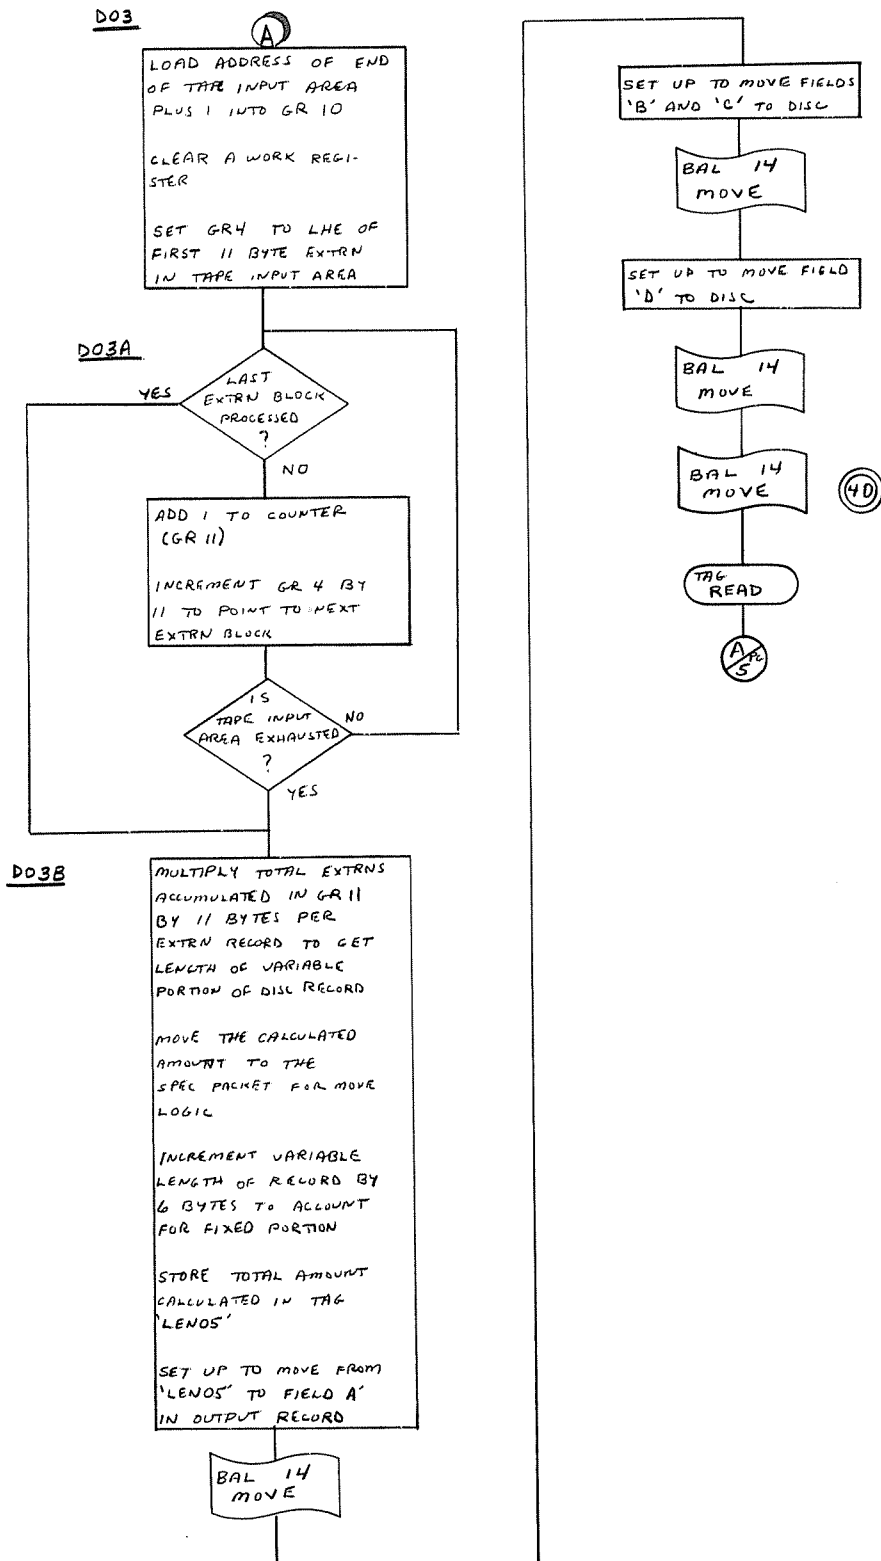 D03
A
LOAD ADDRESS OF END
OF TAPE INPUT AREA
PLUS 1 INTO GR 10
CLEAR A WORK REGI-
STER
SET GR4 TO LHE OF
FIRST 11 BYTE EXTRN
IN TAPE INPUT AREA
D03A
LAST
EXTRN BLOCK
PROCESSED
?
YES
NO
ADD 1 TO COUNTER
(GR 11)
INCREMENT GR 4 BY
11 TO POINT TO NEXT
EXTRN BLOCK
IS
TAPE INPUT
AREA EXHAUSTED
?
NO
YES
D03B
MULTIPLY TOTAL EXTRNS
ACCUMULATED IN GR 11
BY 11 BYTES PER
EXTRN RECORD TO GET
LENGTH OF VARIABLE
PORTION OF DISC RECORD
MOVE THE CALCULATED
AMOUNT TO THE
SPEC PACKET FOR MOVE
LOGIC
INCREMENT VARIABLE
LENGTH OF RECORD BY
6 BYTES TO ACCOUNT
FOR FIXED PORTION
STORE TOTAL AMOUNT
CALCULATED IN TAG
'LEN05'
SET UP TO MOVE FROM
'LEN05' TO FIELD A'
IN OUTPUT RECORD
BAL 14
MOVE
SET UP TO MOVE FIELDS
'B' AND 'C' TO DISC
BAL 14
MOVE
SET UP TO MOVE FIELD
'D' TO DISC
BAL 14
MOVE
BAL 14
MOVE
40
TAG
READ
A PG
5